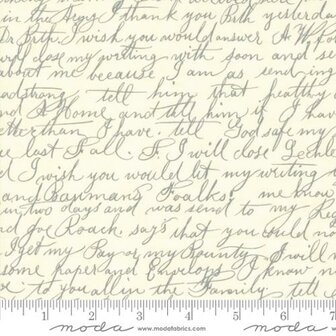 in the Hegy I thank you Beth yesterday
Dr Beth, I wish you would answer
close my writing with soon and se
about me because I am as send in
adstrong tell him that healthy
and A Home and tell him if I hav
etter than I have. tell God safe my
e last Fall. F. I will close
I wish you would let my writing
and Baumans Foalks! me know
in two days and was send to my
and Geo Roach. says that you could no
I get my Pay or my Bounty I will
some paper and Envelops I know
to you all in the Family tell
1 2 3 4 5 6
moda www.modafabrics.com moda